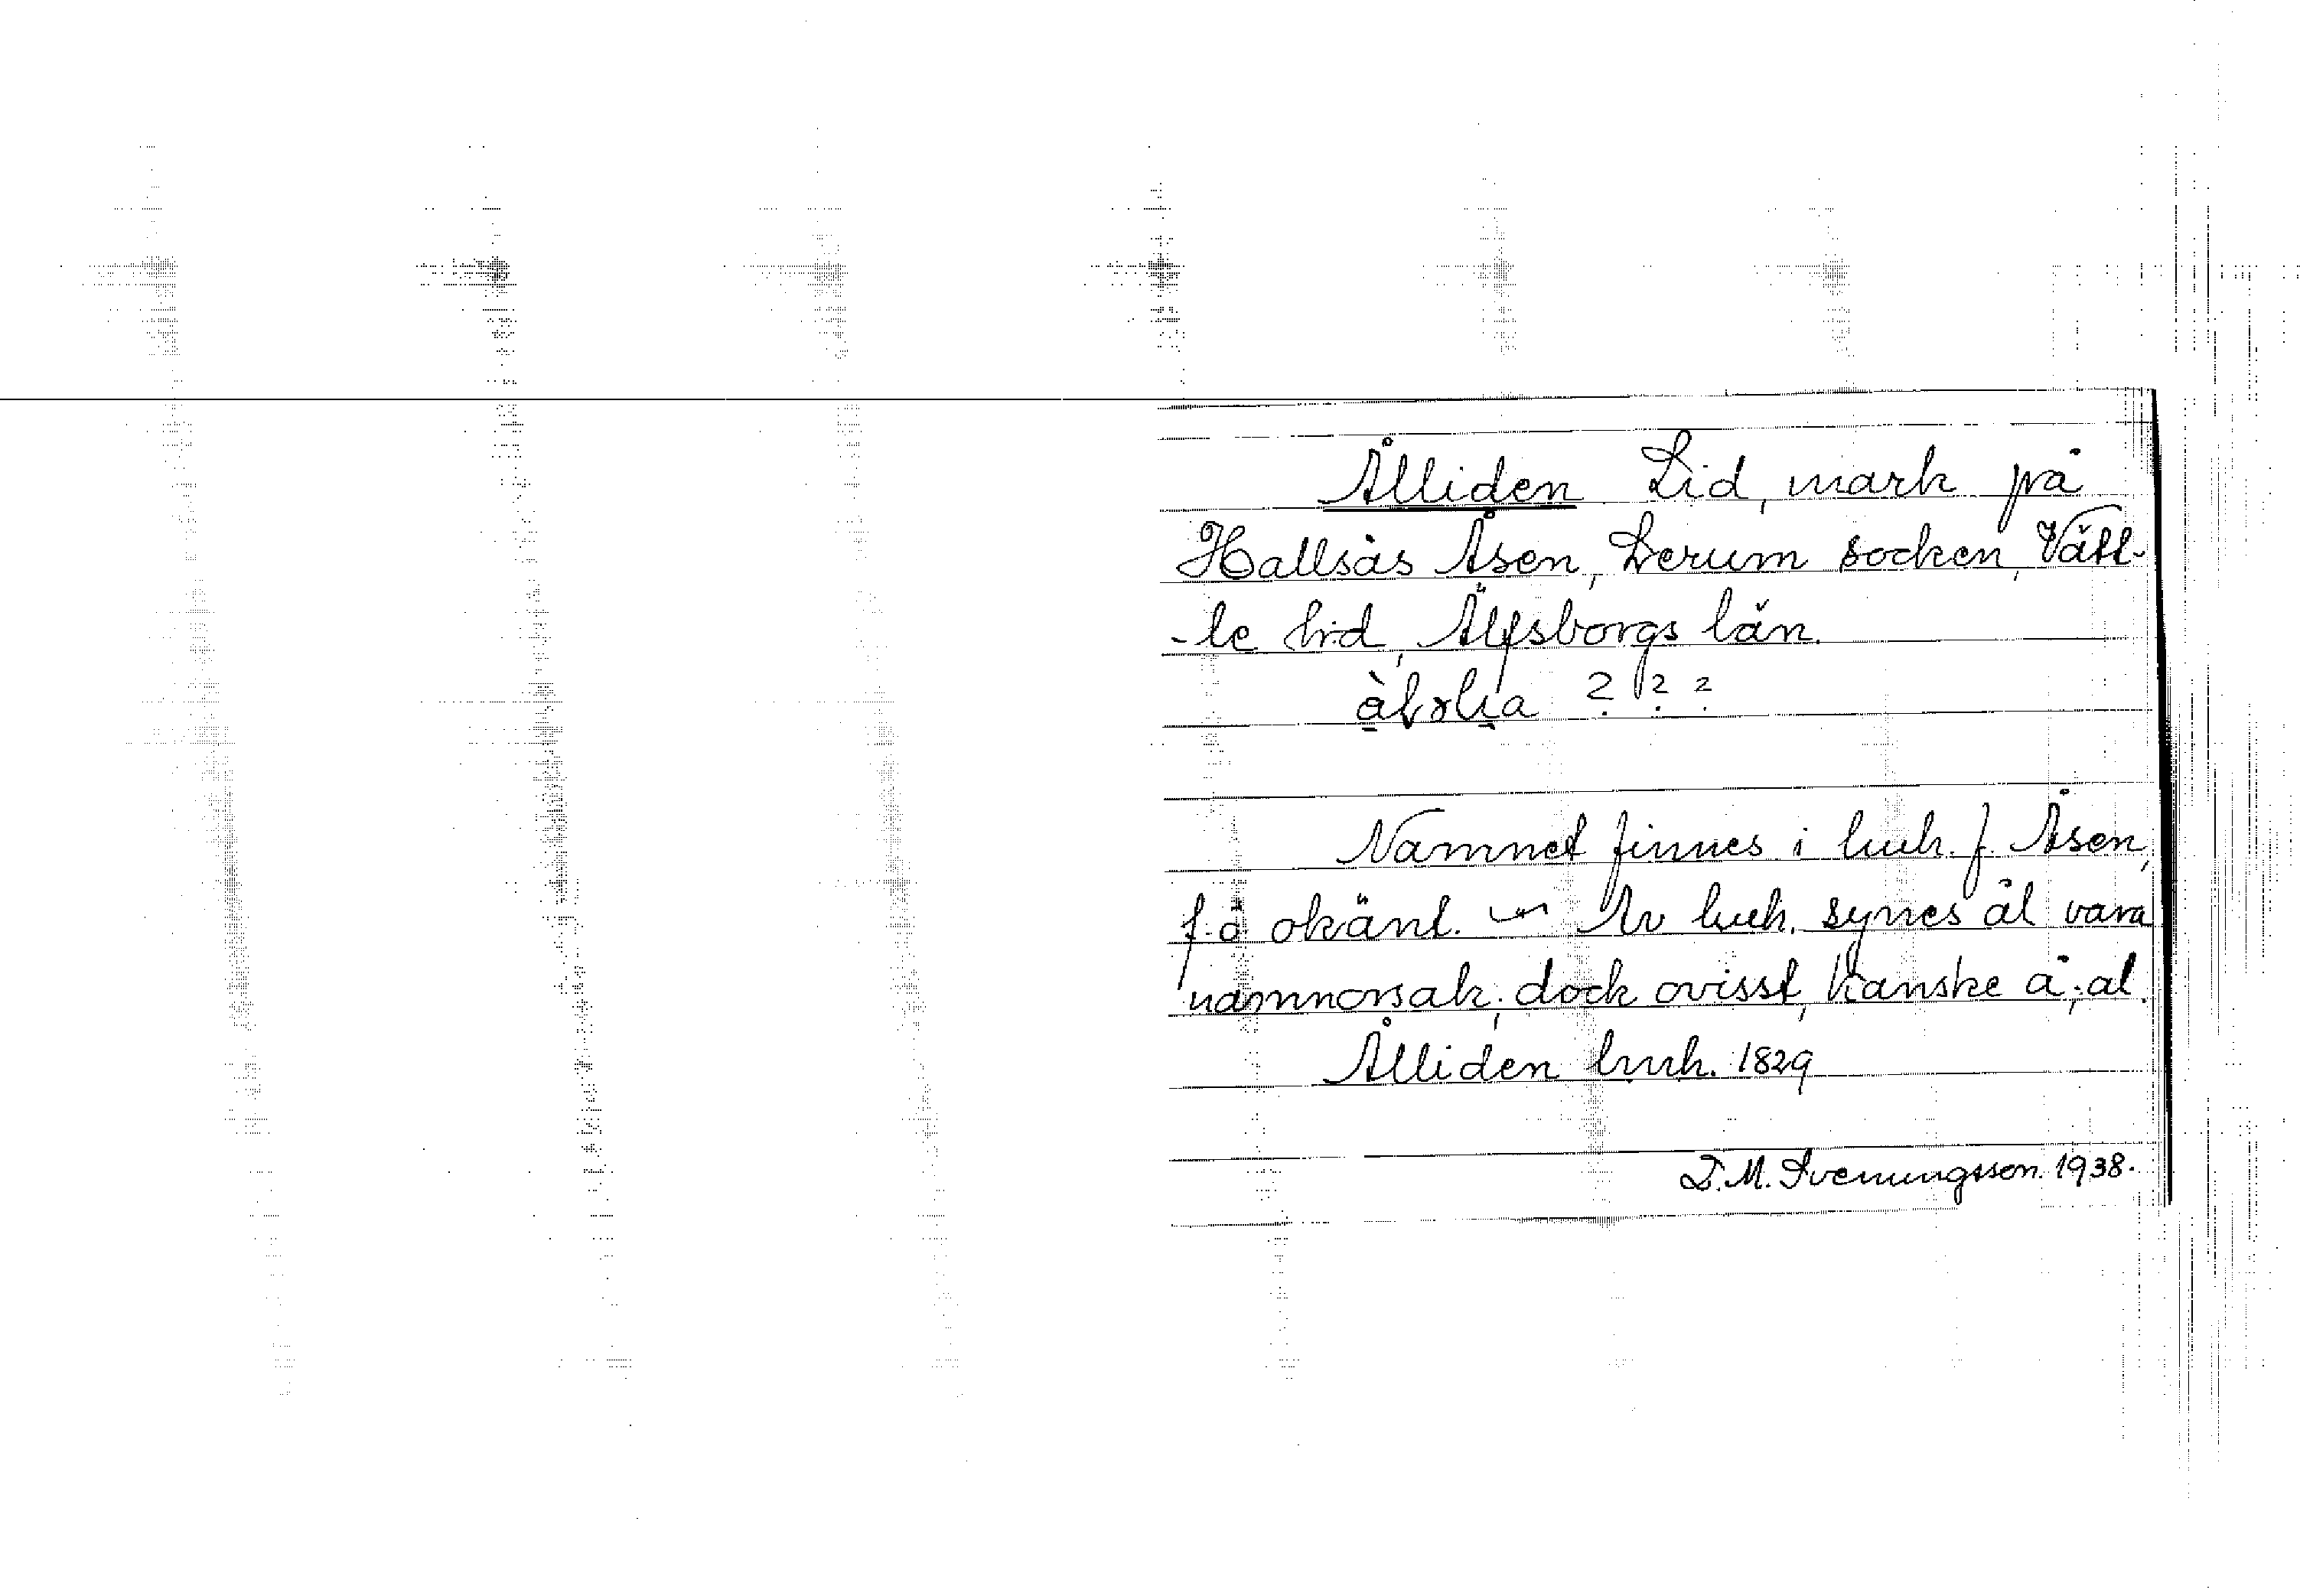 Ålliden Lid, mark på
Hallsås Åsen, Lerum socken, Vätt-
-le hd, Älfsborgs län.
? ? ?
Namnet finnes i luk. f. Åsen,
f. ö okänt. Av luk. synes ål vara
namnorsak; dock ovisst, kanske å; al.
Ålliden luk. 1829
D.M. Svenungsson. 1938.